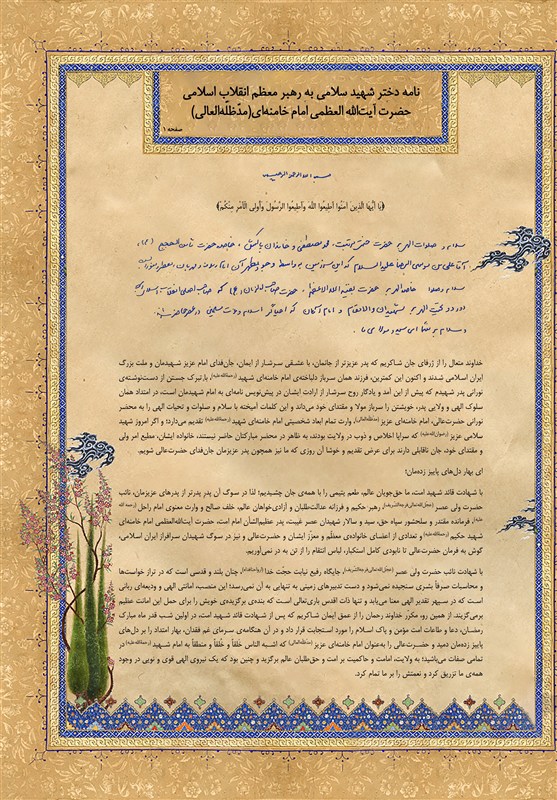 نامه دختر شهید سلامی به رهبر معظم انقلاب اسلامی
حضرت آیت‌الله العظمی امام خامنه‌ای(مدّظلّه‌العالی)
صفحه ۱
بسم الله الرحمن الرحیم
﴿یَا أَیُّهَا الَّذِینَ آمَنُوا أَطِیعُوا اللَّهَ وَأَطِیعُوا الرَّسُولَ وَأُولِی الْأَمْرِ مِنْكُمْ﴾
سلام و صلوات الهی بر حضرت ختمی مرتبت، محمد مصطفی و خاندان پاکش، خاصه حضرت ثامن الحجج (ع)،
آقا علی بن موسی الرضا علیه السلام که این سرزمین به واسطه وجود مطهر آن امام رئوف و مهربان، معطر و منور است.
سلام و صلوات خاصه الهی بر حضرت بقیة الله الاعظم، حضرت صاحب الزمان (عج) که صاحب اصلی انقلاب اسلامی
درود و تحیت الهی بر شهیدان والامقام و امام آنان که احیاگر اسلام در عصر حاضرند.
و سلام بر شما ای سید و مولای ما.
خداوند متعال را از ژرفای جان شاکریم که پدر عزیزتر از جانمان، با عشقی سرشار از ایمان، جان‌فدای امام عزیز شهیدمان و ملت بزرگ
ایران اسلامی شدند و اکنون این کمترین، فرزند همان سرباز دلباخته‌ی امام خامنه‌ای شهید با تبرک جستن از دست‌نوشته‌ی
نورانی پدر شهیدم که پیش از این آمد و یادگار روح سرشار از ارادت ایشان در پیش‌نویس نامه‌ای به امام شهیدمان است، در امتداد همان
سلوک الهی و ولایی پدر، خویشتن را سرباز مولا و مقتدای خود می‌داند و این کلمات آمیخته با سلام و صلوات و تحیات الهی را به محضر
نورانی حضرت‌عالی، امام خامنه‌ای عزیز وارث تمام ابعاد شخصیتی امام خامنه‌ای شهید تقدیم می‌دارد؛ و اگر امروز شهید
سلامی عزیز که سراپا اخلاص و ذوب در ولایت بودند، به ظاهر در محضر مبارکتان حاضر نیستند، خانواده ایشان، مطیع امر ولی
و مقتدای خود، جان ناقابلی دارند برای عرض تقدیم و خوشا آن روزی که ما نیز همچون پدر عزیزمان جان‌فدای حضرت‌عالی شویم.
ای بهار دل‌های پاییز زده‌مان؛
با شهادت قائد شهید امت، ما حق‌جویان عالم، طعم یتیمی را با همه‌ی جان چشیدیم؛ لذا در سوگ آن پدرِ پدرتر از پدرهای عزیزمان، نائب
حضرت ولی عصر رهبر حکیم و فرزانه عدالت‌طلبان و آزادی‌خواهان عالم، خلف صالح و وارث معنوی امام راحل
فرمانده مقتدر و سلحشور سپاه حق، سید و سالار شهیدان عصر غیبت، پدر عظیم‌الشأن امام امت، حضرت آیت‌الله‌العظمی امام خامنه‌ای
شهید حکیم و تعدادی از اعضای خانواده‌ی معظّم و معزز ایشان و حضرت‌عالی و نیز در سوگ شهیدان سرافراز ایران اسلامی،
گوش به فرمان حضرت‌عالی تا نابودی کامل استکبار، لباس انتقام را از تن به در نمی‌آوریم.
با شهادت نائب حضرت ولی عصر جایگاه رفیع نیابت حجّت خدا چنان بلند و قدسی است که در تراز خواست‌ها
و محاسبات صرفاً بشری سنجیده نمی‌شود و دست تدبیرهای زمینی به تنهایی به آن نمی‌رسد؛ این منصب، امانتی الهی و ودیعه‌ای ربانی
است که در سپهر تقدیر الهی معنا می‌یابد و تنها ذات اقدس باری‌تعالی است که بنده‌ی برگزیده‌ی خویش را برای حمل این امانت عظیم
برمی‌گزیند. از همین رو، مکرّر خداوند رحمان را از عمق ایمان شاکریم که پس از شهادت قائد شهید امت، در اولین شب قدر ماه مبارک
رمضان، دعا و طاعات امت مؤمن و پاک اسلام را مورد استجابت قرار داد و در آن هنگامه‌ی سرمای غم فقدان، بهار امتداد را بر دل‌های
پاییز زده‌مان دمید و حضرت‌عالی را به‌عنوان امام خامنه‌ای عزیز که اشبه الناس خَلقاً و خُلقاً و منطقاً به امام شهید در
تمامی صفات می‌باشید؛ به ولایت، امامت و حاکمیت بر امت و حق‌طلبان عالم برگزید و چنین بود که یک نیروی الهی قوی و نویی در وجود
همه‌ی ما تزریق کرد و نعمتش را بر ما تمام کرد.